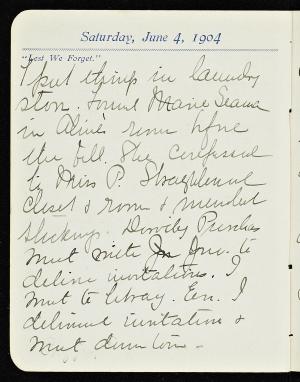 Saturday, June 4, 1904
"Lest We Forget."
I put things in laundry
Found Marie
in Aline's room before
the bell. She confessed
to Miss P. Straightened
closet & room & mended
stockings. Dorothy
went with Jr. to
deliver invitations. I
went to library. Eve. I
delivered invitation &
went down town.